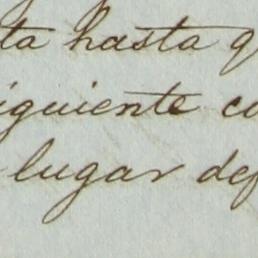 ta hasta q
iguiente co
lugar def